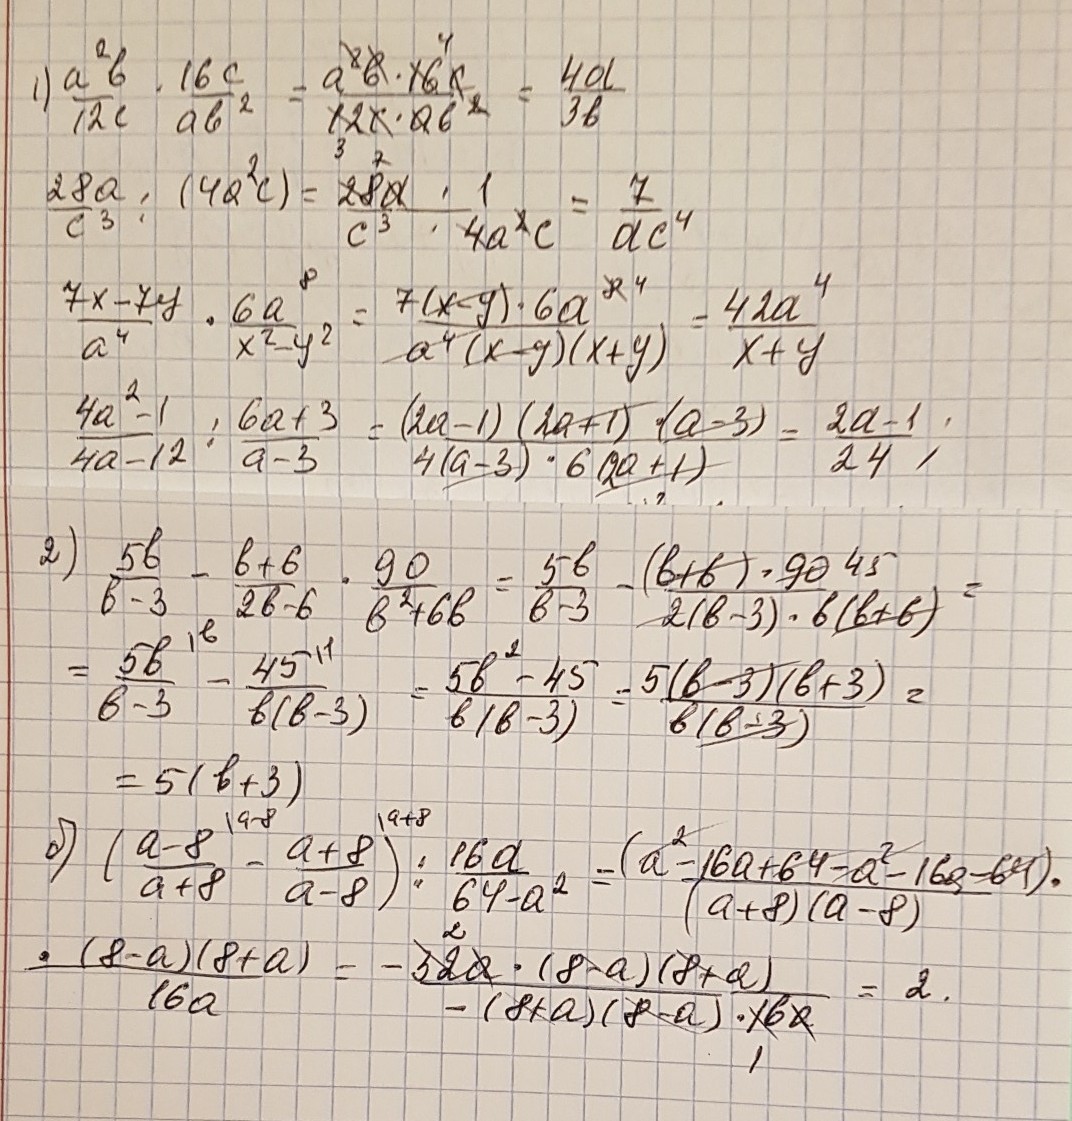 1) a²b/12c · 16c/ab² = a²b·16c/12c·ab² 4 3 = 4a/3b
28a/c³ : (4a²c) = 28a · 1/c³ · 4a²c 7 = 7/ac⁴
7x-7y/a⁴ · 6a⁸/x²-y² = 7(x-y)·6a⁸ ⁴/a⁴(x-y)(x+y) = 42a⁴/x+y
4a²-1/4a-12 : 6a+3/a-3 = (2a-1)(2a+1)·(a-3)/4(a-3)·6(2a+1) = 2a-1/24;
2) 5b/b-3 - b+6/2b-6 · 90/b²+6b = 5b/b-3 - (b+6)·90 45/2(b-3)·b(b+6) =
= 5b\b/b-3 - 45\1/b(b-3) = 5b²-45/b(b-3) = 5(b-3)(b+3)/b(b-3) =
= 5(b+3)
б) (a-8\a-8/a+8 - a+8\a+8/a-8) : 16a/64-a² = (a²-16a+64-a²-16a-64)/(a+8)(a-8) ·
· (8-a)(8+a)/16a = -32a·(8-a)(8+a)/-(8+a)(8-a)·16a 2 1 = 2.